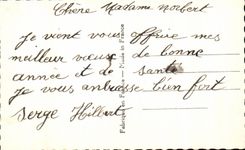 Chère Madame Norbert
je vient vous offrire mes
meilleur vœuse de bonne
année et de santé
je vous embrasse bien fort
Serge Hilbert
Fabriqué en France - Made in France